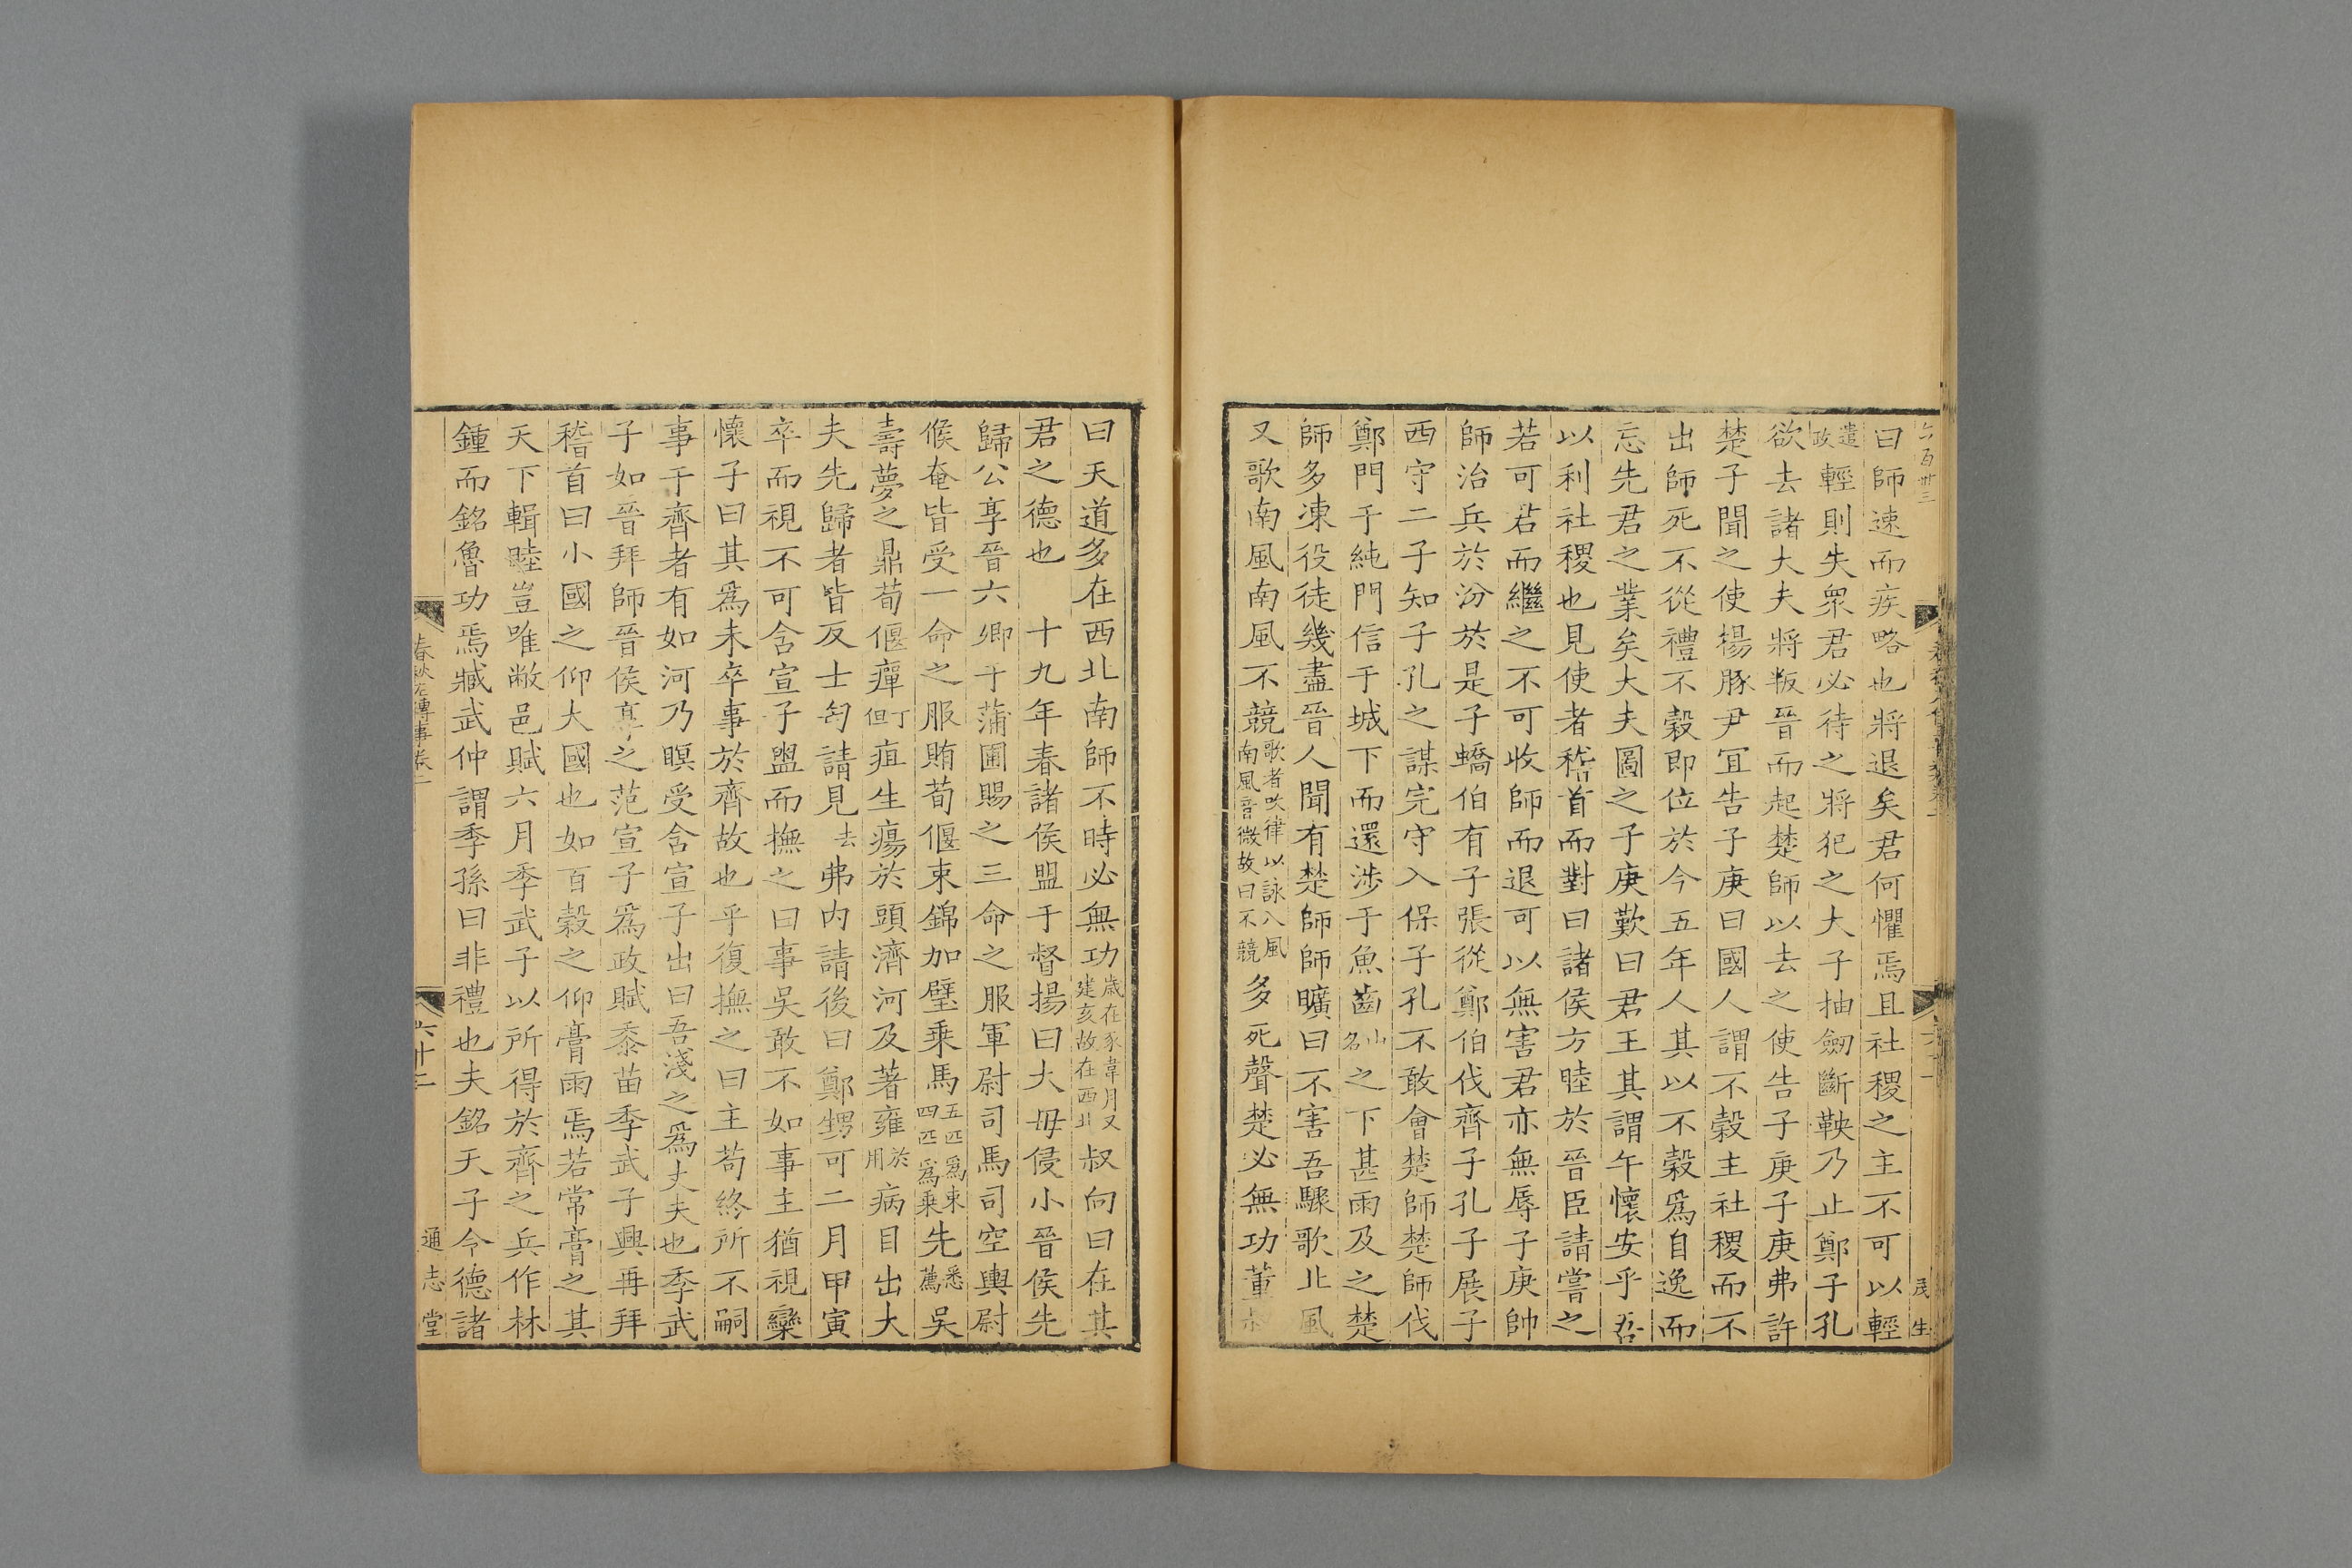 曰師速而疾略也將退矣君何懼焉且社稷之主不可以輕
遣政輕則失衆君必待之將犯之大子抽劒斷鞅乃止鄭子孔
欲去諸大夫將叛晉而起楚師以去之使告子庚子庚弗許
楚子聞之使楊豚尹冝告子庚曰國人謂不穀主社稷而不
出師死不從禮不穀即位於今五年人其以不穀爲自逸而
忘先君之業矣大夫圖之子庚歎曰君王其謂午懷安乎吾
以利社稷也見使者稽首而對曰諸侯方睦於晉臣請嘗之
若可君而繼之不可收師而退可以無害君亦無辱子庚帥
師治兵於汾於是子蟜伯有子張從鄭伯伐齊子孔子展子
西守二子知子孔之謀完守入保子孔不敢會楚師楚師伐
鄭門于純門信于城下而還涉于魚齒山名之下甚雨及之楚
師多凍役徒幾盡晉人聞有楚師師曠曰不害吾驟歌北風
又歌南風南風不競歌者吹律以詠八風南風音微故曰不競多死聲楚必無功董叔
曰天道多在西北南師不時必無功歲在豕韋月又建亥故在西北叔向曰在其
君之德也　十九年春諸侯盟于督揚曰大毋侵小晉侯先
歸公享晉六卿于蒲圃賜之三命之服軍尉司馬司空輿尉
候奄皆受一命之服賄荀偃束錦加璧乗馬五匹爲束四匹爲乗先悉薦吳
壽夢之鼎荀偃癉丁但疽生瘍於頭濟河及著雍於用病目出大
夫先歸者皆反士匄請見去弗内請後曰鄭甥可二月甲寅
卒而視不可含宣子盥而撫之曰事吳敢不如事主猶視欒
懷子曰其爲未卒事於齊故也乎復撫之曰主苟終所不嗣
事于齊者有如河乃瞑受含宣子出曰吾淺之爲丈夫也季武
子如晉拜師晉侯享之范宣子爲政賦黍苗季武子興再拜
稽首曰小國之仰大國也如百穀之仰膏雨焉若常膏之其
天下輯睦豈唯敝邑賦六月季武子以所得於齊之兵作林
鍾而銘魯功焉臧武仲謂季孫曰非禮也夫銘天子令德諸
春秋左傳事卷十
六十二
通志堂